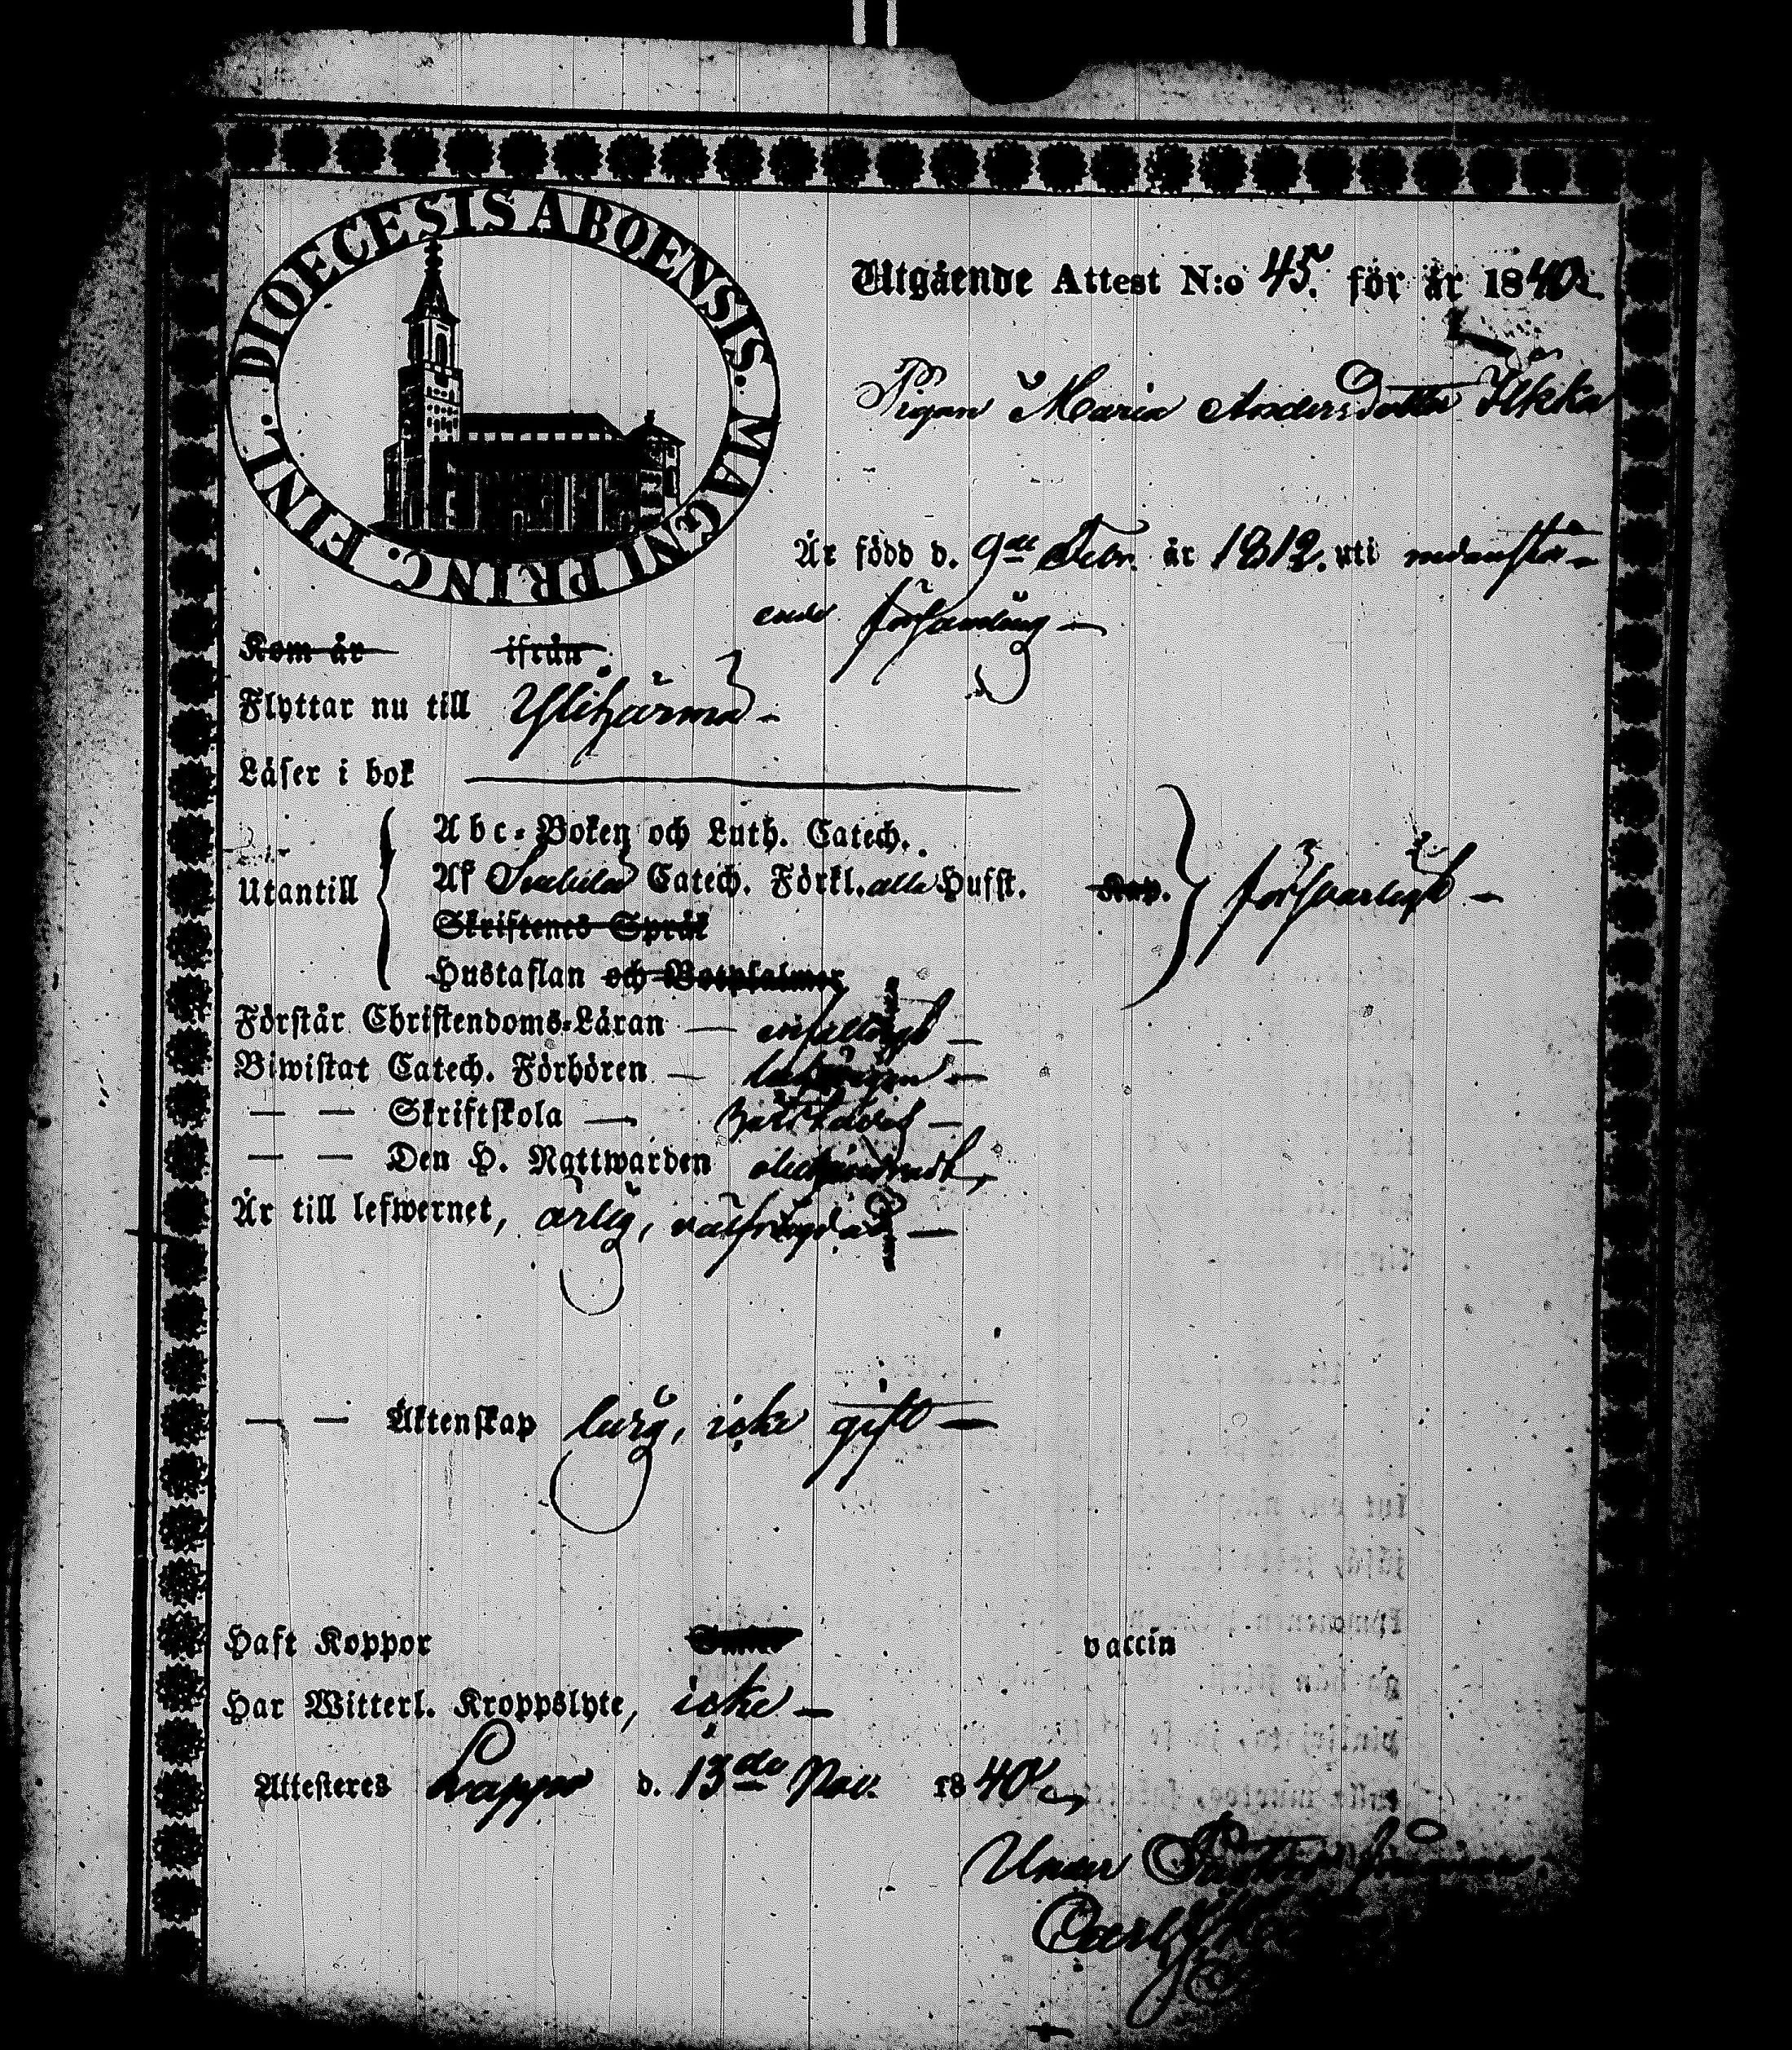 DIOECESIS ABOENSIS. MAGNI PRINC. FINL.
Utgående Attest N:o 45. för år 1840
Pigan Maria Andersdotter Ilkka
Är född d. 9de Febr. år 1812. uti nedanstå-
ende församling
Kom år ifrån
Flyttar nu till Ylihärmä
Läser i bok
Abc-Boken och Luth. Catech.
Utantill
Af Svebilii Catech. Förkl. alla Hufst. Kap. försvarligt
Skriftenes Språk
Hustaflan och Botpsalmer
Förstår Christendoms-Läran — enfaldigt
Biwistat Catech. Förhören —
— — Skriftskola —
— — Den H. Nattwarden
Är till lefwernet, ärlig, välfrägdad
— — Äktenskap ledig, icke gift
Haft Koppor vaccin
Har Witterl. Kroppslyte, icke
Attesteres Lappo d. 13de Nov. 1840
Under Pastors
Carl